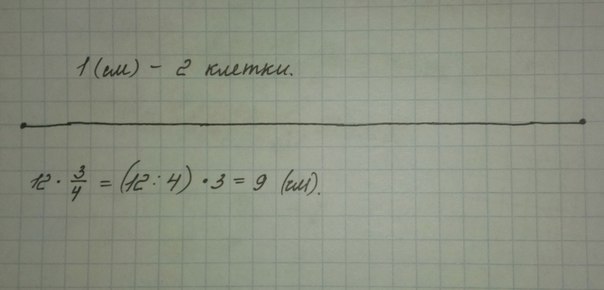 1 (см) - 2 клетки.
12 · 3/4 = (12 : 4) · 3 = 9 (см).